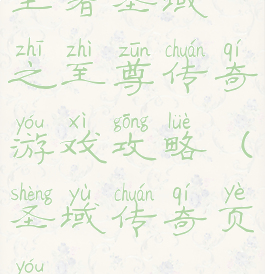 王者圣域
zhī zhì zūn chuán qí
之至尊传奇
yóu xì gōng lüè
游戏攻略（
shèng yù chuán qí yè
圣域传奇页
yóu